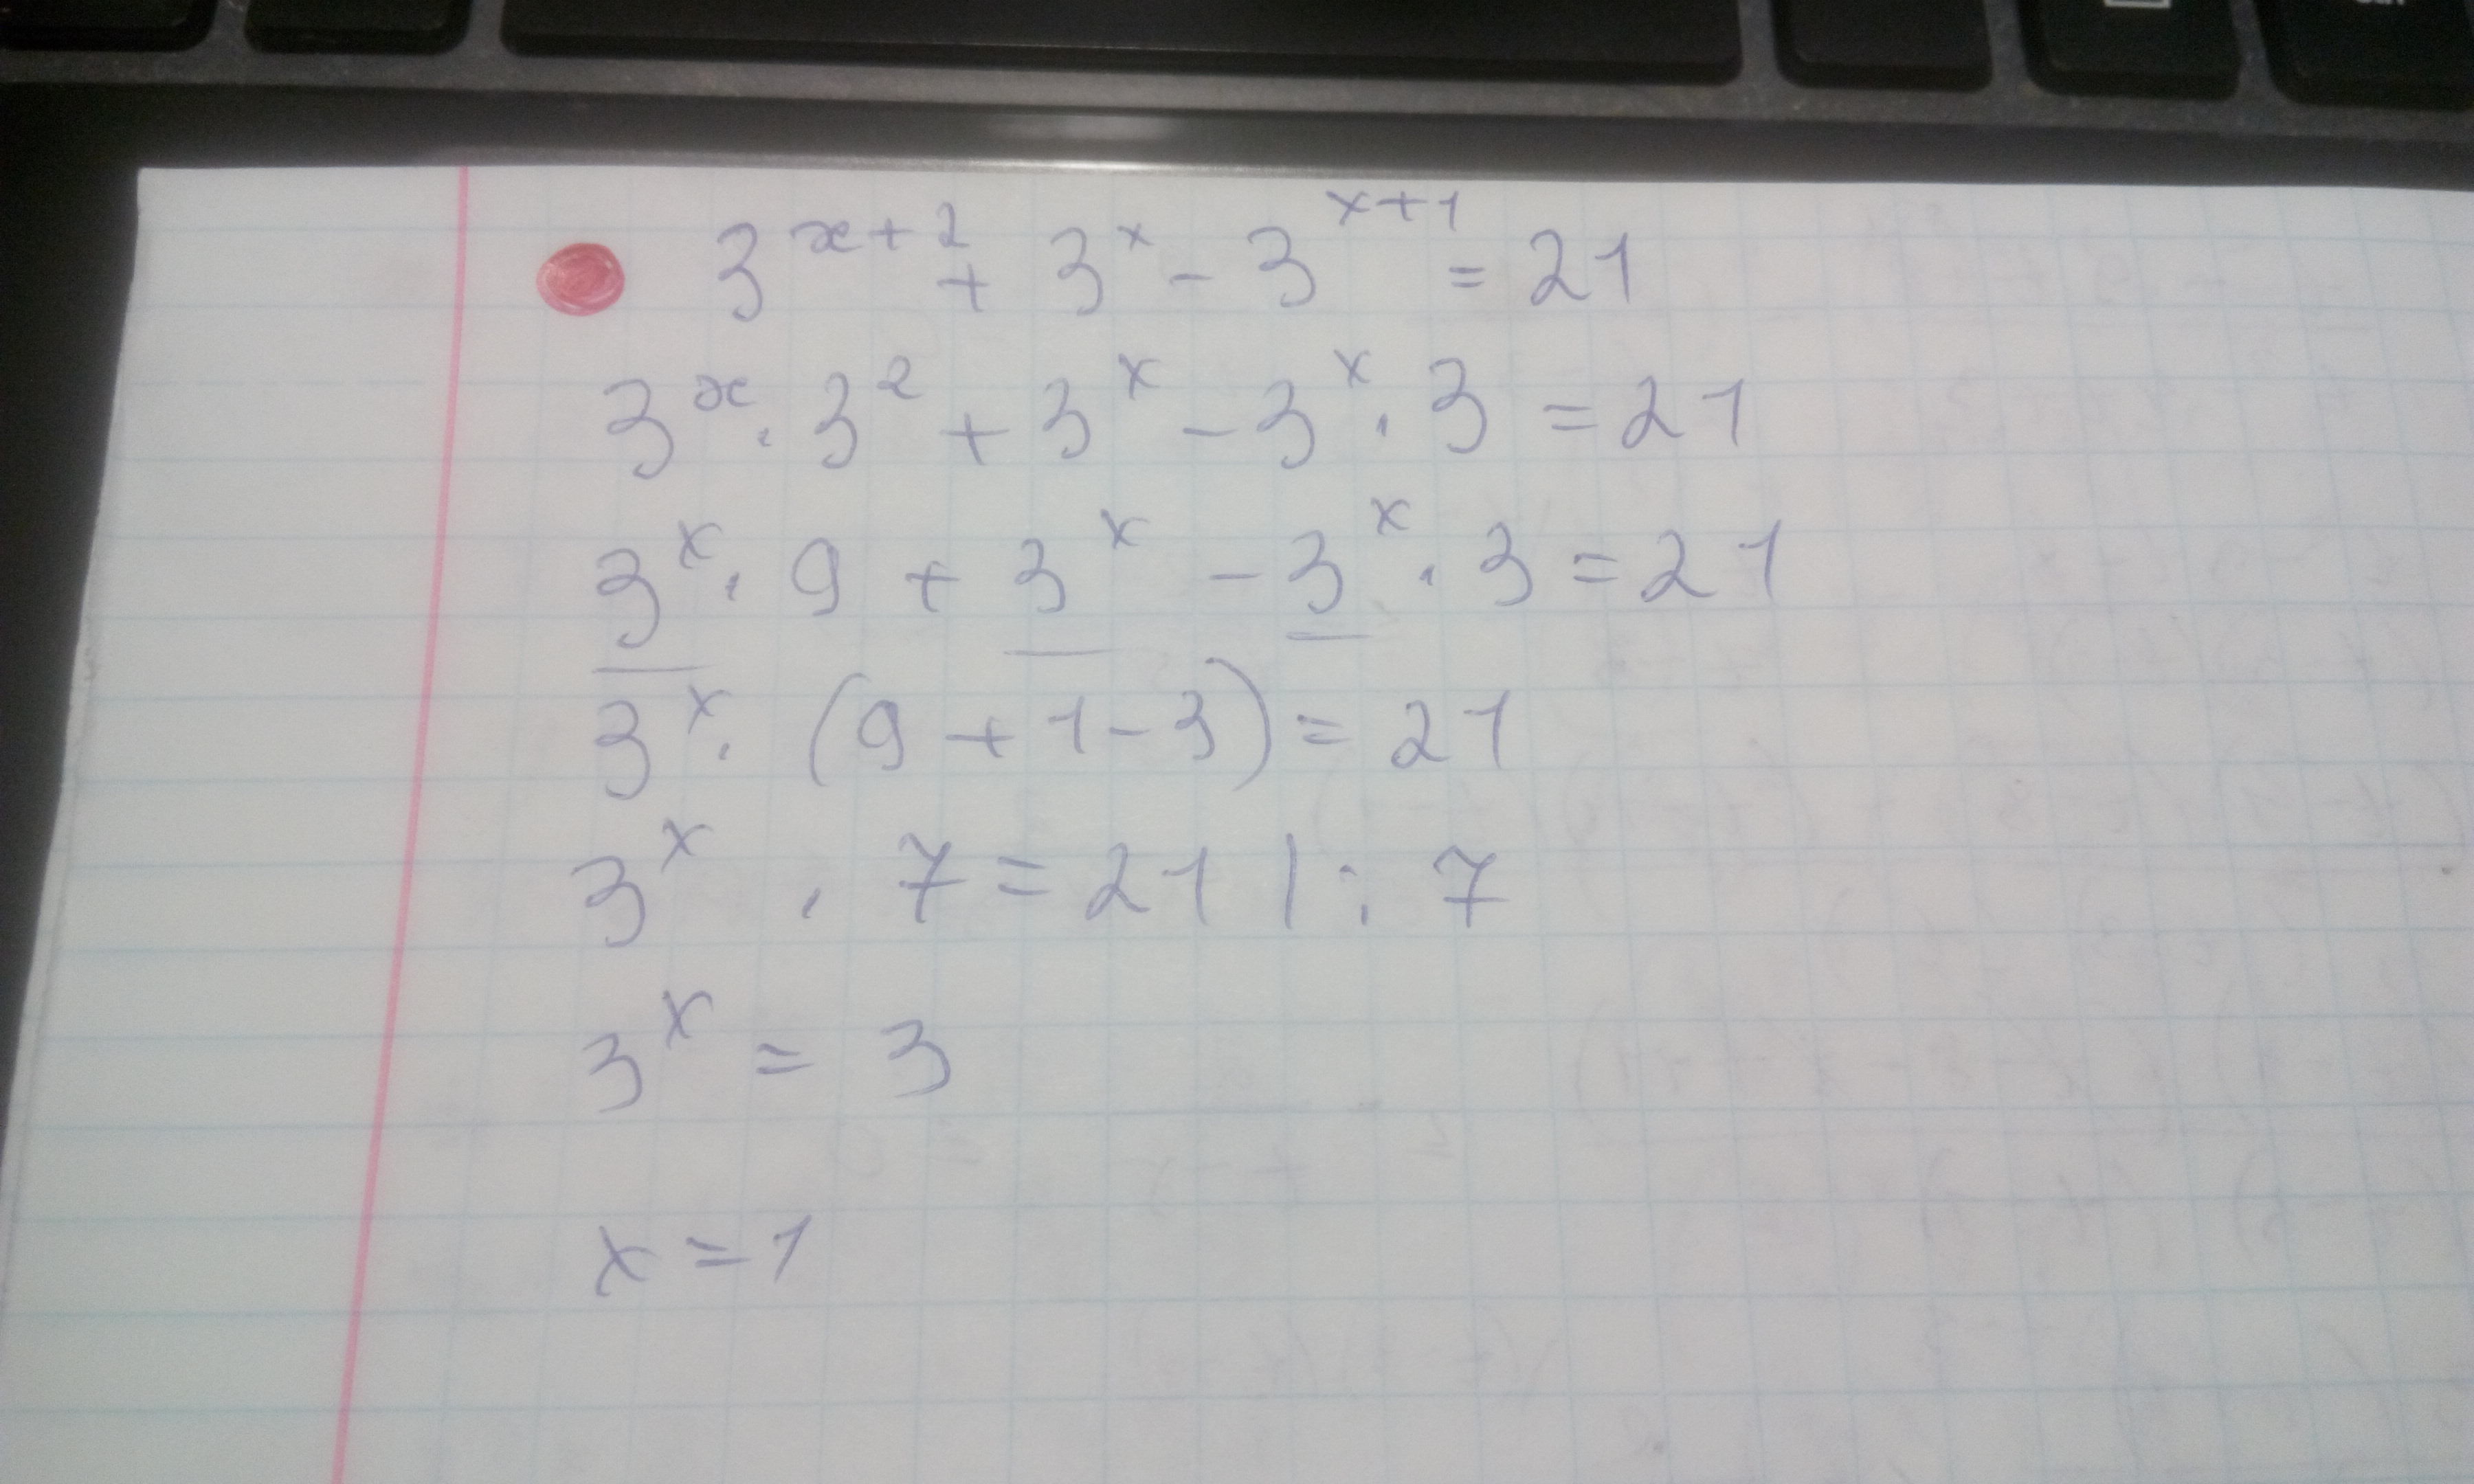 3^{x+2} + 3^x - 3^{x+1} = 21
3^x · 3^2 + 3^x - 3^x · 3 = 21
3^x · 9 + 3^x - 3^x · 3 = 21
3^x · (9 + 1 - 3) = 21
3^x · 7 = 21 | : 7
3^x = 3
x = 1